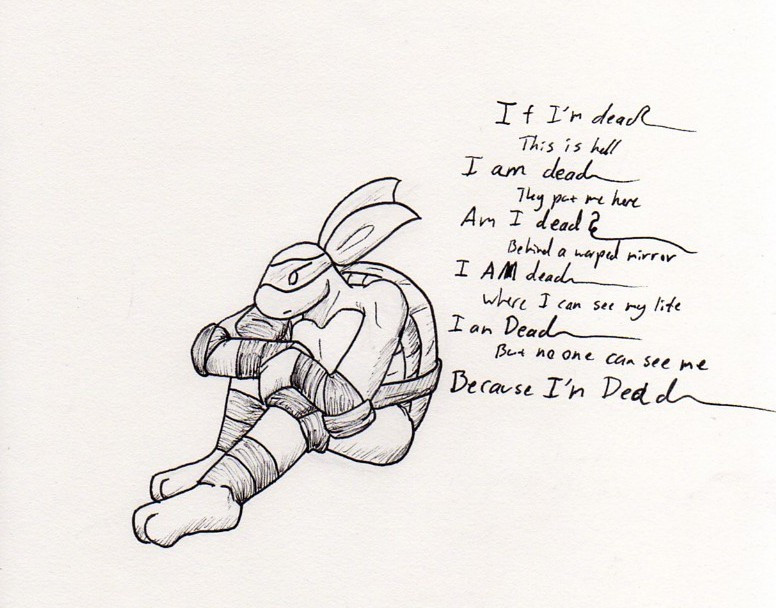 If I'm dead
This is hell
I am dead
They put me here
Am I dead?
Behind a warped mirror
I AM dead
where I can see my life
I am Dead
But no one can see me
Because I'm Dead